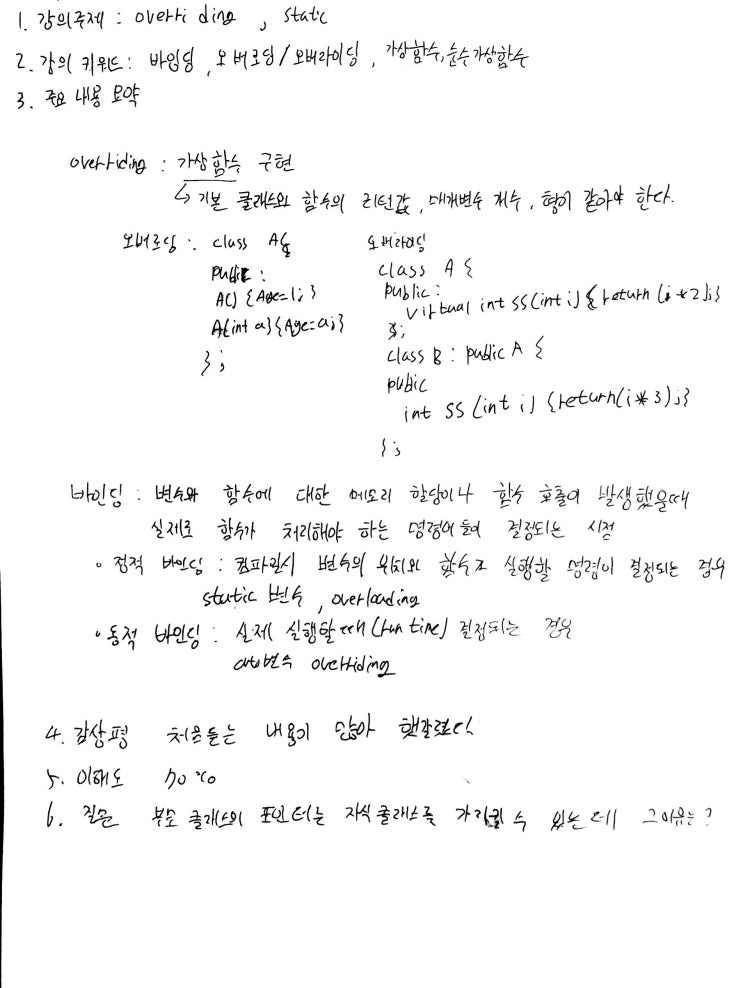 1. 강의주제 : overriding , static
2. 강의 키워드: 바인딩, 오버로딩/오버라이딩, 가상함수, 순수가상함수
3. 주요 내용 요약
overriding : 가상함수 구현
↳ 기본 클래스와 함수의 리턴값, 매개변수 개수, 형이 같아야 한다.
오버로딩 : class A{ 오버라이딩
public : class A {
A() {Age=1;} public :
A(int a){Age=a;} virtual int SS(int i) {return (i*2);}
}; };
class B : public A {
public
int SS (int i) {return(i*3);}
};
바인딩 : 변수와 함수에 대한 메모리 할당이나 함수 호출이 발생했을때
실제로 함수가 처리해야 하는 명령어들이 결정되는 시점
• 정적 바인딩 : 컴파일시 변수의 위치와 함수가 실행할 명령이 결정되는 경우
static 변수, overloading
• 동적 바인딩 : 실제 실행할때(run time) 결정되는 경우
auto변수 overriding
4. 감상평 처음듣는 내용이 많아 헷갈렸다
5. 이해도 70%
6. 질문 부모 클래스의 포인터는 자식클래스를 가리킬 수 있는데 그이유는?